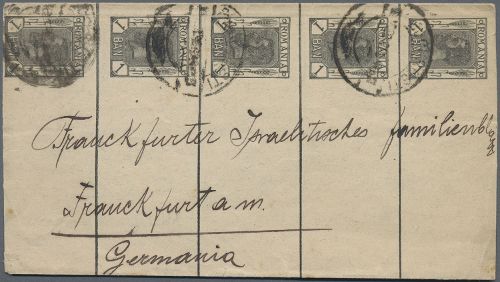 1 BANI ROMANIA 1
1 BANI ROMANIA 1
1 BANI ROMANIA 1
1 BANI ROMANIA 1
1 BANI ROMANIA 1
Franckfurter Israelitisches familienblatt
Franckfurt a m.
Germania